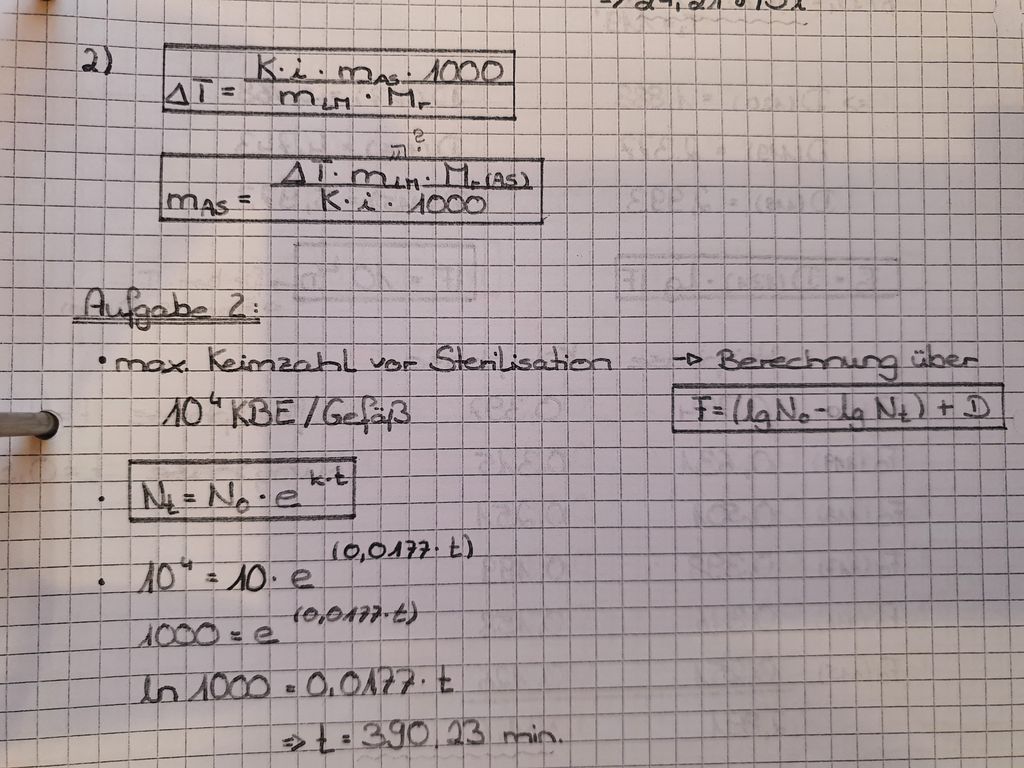 2)
ΔT = K · i · m_AS · 1000 / m_LM · M_r
?
m_AS = ΔT · m_LM · M_r(AS) / K · i · 1000
Aufgabe 2:
• max. Keimzahl vor Sterilisation → Berechnung über
10⁴ KBE/Gefäß F = (lg N₀ - lg N_t) + D
• N_t = N₀ · e^(k·t)
• 10⁴ = 10 · e^(0,0177 · t)
1000 = e^(0,0177 · t)
ln 1000 = 0,0177 · t
⇒ t = 390,23 min.